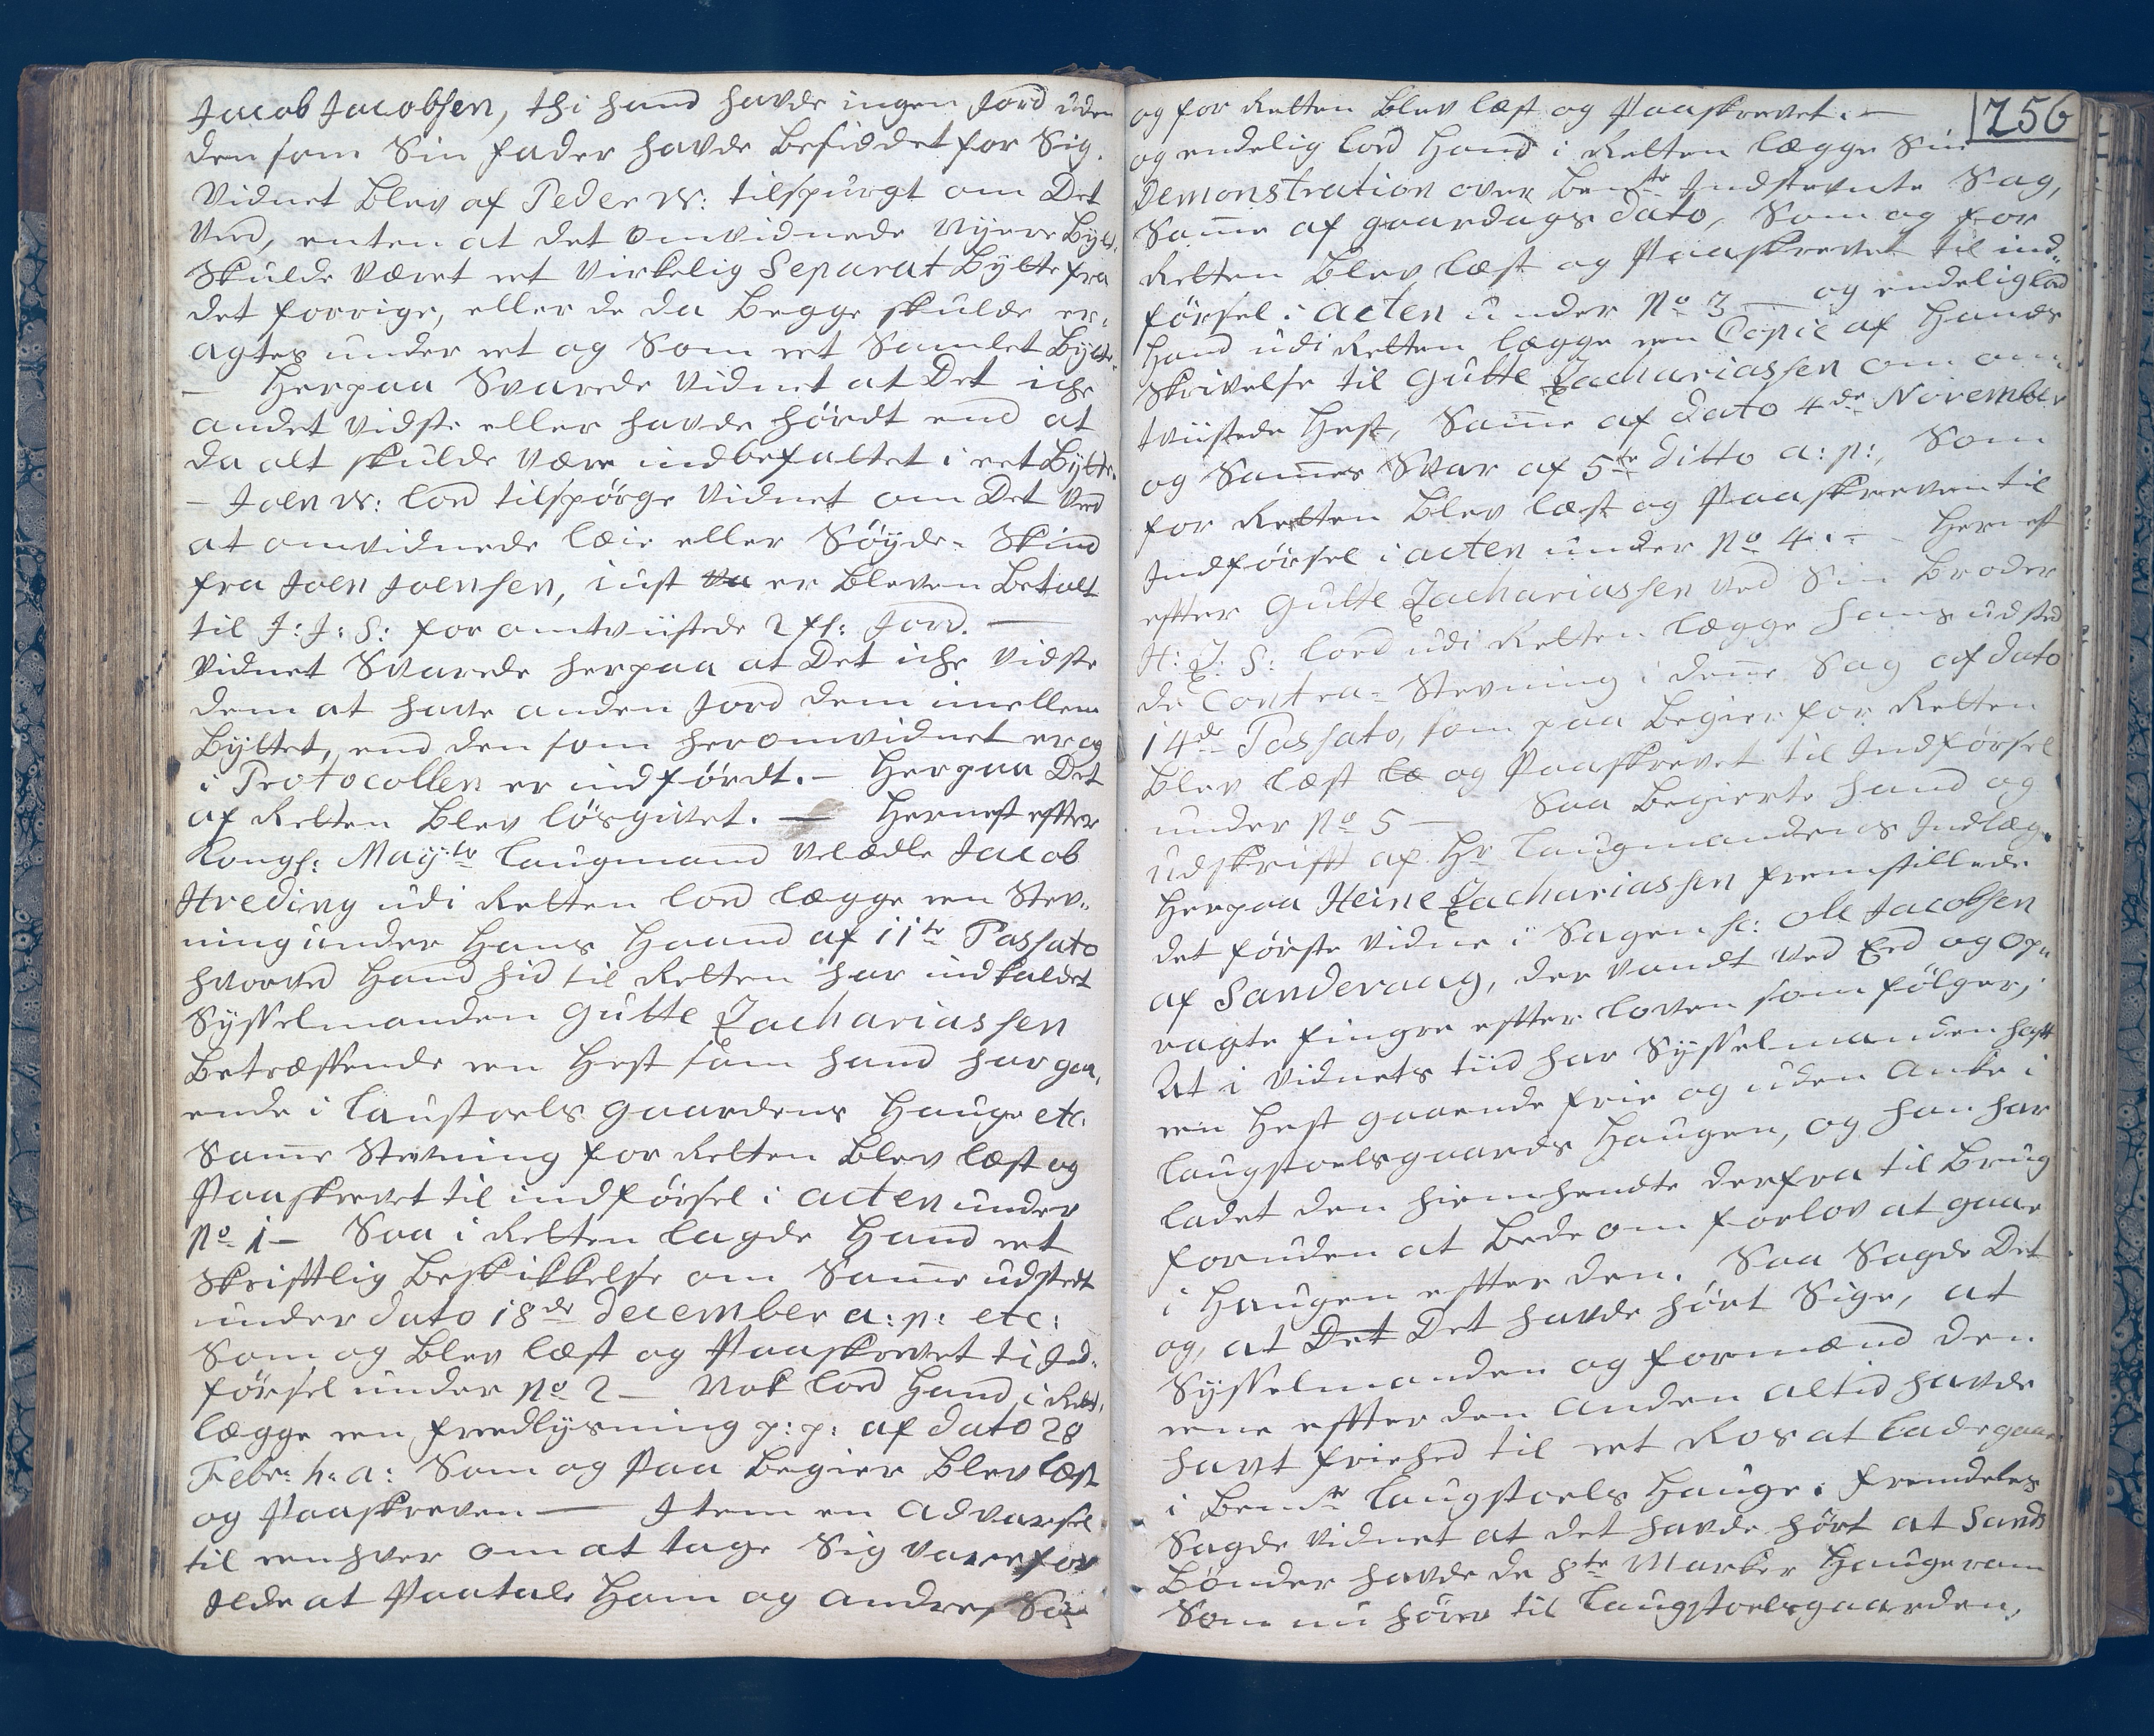 Jacob Jacobsen, thi hand havde ingen Jord uden
den som Sin fader havde besiddet for Sig.
Vidnet blev af Peder N: tilspurgt om Det
Veed, enten at det omvidnede Nyere Bytte
Skulde Været eet Virkelig Separat Bytte fra
det forrige, eller de da begge skulde er„
agtes under eet og Som eet Samlet Bytte.
— Herpaa Svarede Vidnet at Det iche
andet Vidste eller havde hördt end at
da alt skulde Være indbefattet i eet Bytte.
— Joen N: lod tilspörge Vidnet om Det Veed
at omvidnede læie eller Söyde- Skind
fra Joen Joensen, iust er bleven betalt
til J: J: S: for omtviistede 2 fl: Jord. —
Vidnet Svarede herpaa at Det iche Vidste
dem at have anden Jord dem imellem
Byttet, end den som heromvidnet er og
i Protocollen er indfördt. — Herpaa Det
af Retten blev lösgivet. — Hernest effter
Kongl: May:ts Laugmand Velædle Jacob
Hveding udi Retten lod lægge een Stev„
ning under Hans Haand af 11te Passato
hvorved Hand hid til Retten har indkaldet
Sysselmanden Gutte Zachariassen
betræffende een Hest som hand har gaa„
ende i Laustoels gaardens Hauge etc.
Samme Stevning for Retten blev læst og
Paaskrevet til indförsel i acten under
No 1 — Saa i Retten lagde Hand eet
Skrifftlig Beskikkelse om Samme udstedt
under dato 18de December a: p: etc:
Som og blev læst og Paaskrevet til Ind„
försel under No 2 — Nok lod Hand i Rett.
lægge een fredlysning p: p: af dato 28
Febr: h: a: Som og Paa begier blev læst
og Paaskreven — Item en advarsel
til eenhver om at tage Sig vare for
Ilde at Paatale Ham og andres
256
og for Retten blev læst og Paaskrevet. —
og endelig lod Hand i Retten lægge Sin
Demonstration over bemte Indstevnte Sag,
Samme af gaardags dato, Som og for
Retten blev læst og Paaskrevet til ind„
försel i acten under No 3 — og endelig lod
Hand udi Retten lægge een Copie af Hands
Skrivelse til Gutte Zachariassen om om„
tviistede Hest, Samme af dato 4de November
og Sammes Svar af 5te ditto a: p:, Som
for Retten blev læst og Paaskreven til
Indförsel i acten under No 4. — Hernest
effter Gutte Zachariassen ved Sin broder
H: Z: S: lod udi Retten lægge hans udsted
de Contra- Stevning i denne Sag af dato
14de Passato, som paa begier for Retten
blev læst læ og Paaskrevet til Indförsel
under No 5 — Saa begierte hand og
udskrifft af Hr Laugmandens Indlæg.
Herpaa Heine Zachariassen fremstillede
det förste Vidne i Sagen sc: Ole Jacobsen
af Sandevaag, der vandt ved Eed og Op„
ragte fingre effter loven som fölger,
At i Vidnets tiid har Sysselmanden hafft
een Hest gaaende frie og uden Anke i
Laugstoelsgaards Haugen, og han har
ladet den hiemhendte derfra til brug
foruden at bede om forlov at gaae
i Haugen effter den. Saa Sagde Det
og, at Det Det havde hört Sige, at
Sysselmanden og formænd den
eene effter den anden altid havde
havt friehed til eet Ros at lade gaae
i bemte Laugstoels Hauge. fremdeles
Sagde Vidnet at det havde hört at Sands
Bönder havde de 8te Marker Haugerom
Som nu hörer til Laugstoelsgaarden,